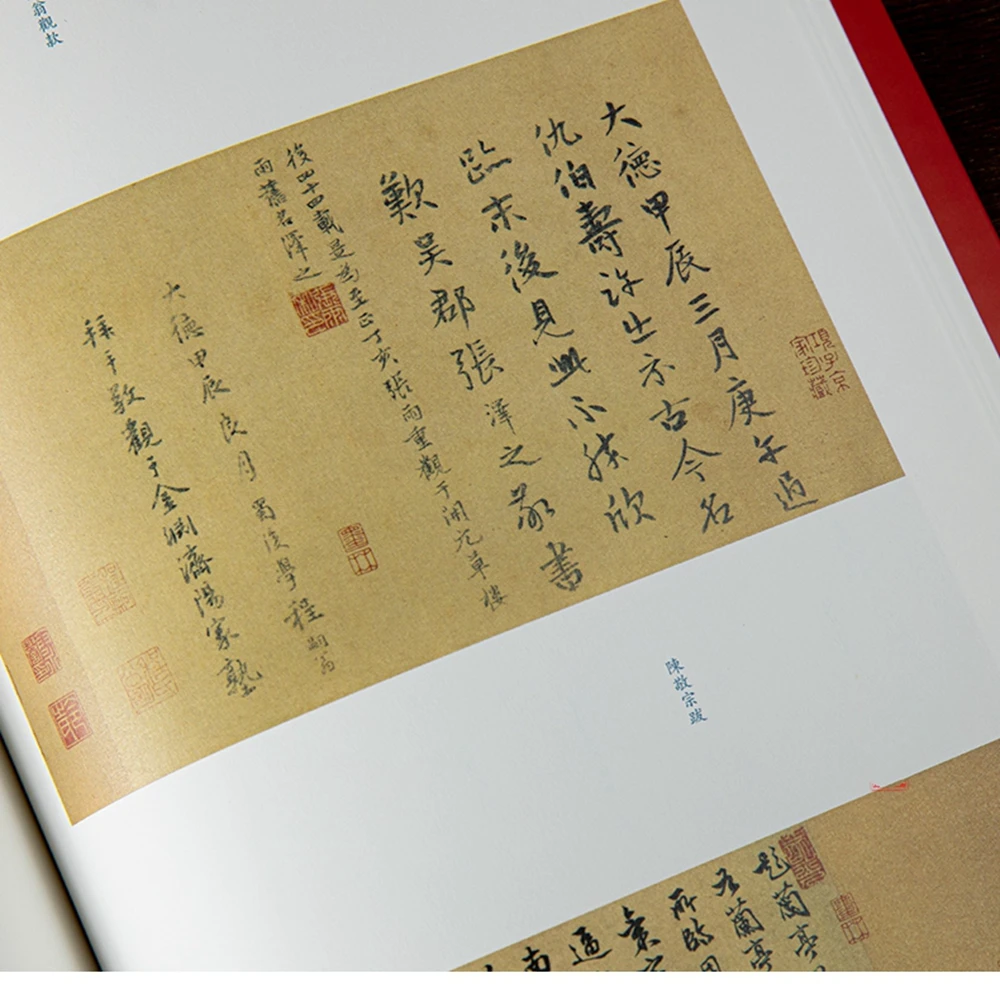 翁觀款
大德甲辰三月庚午過
仇伯壽許出示古今名
跡末後見此不勝欣
歎吳郡張澤之敬書
後四十四載是為至正丁亥張雨重觀于開元草樓
雨舊名澤之
大德甲辰良月蜀後學程嗣翁
拜手敬觀于金淵濟陽家塾
陳敬宗跋
題蘭亭
右蘭亭
所臨
逼
南